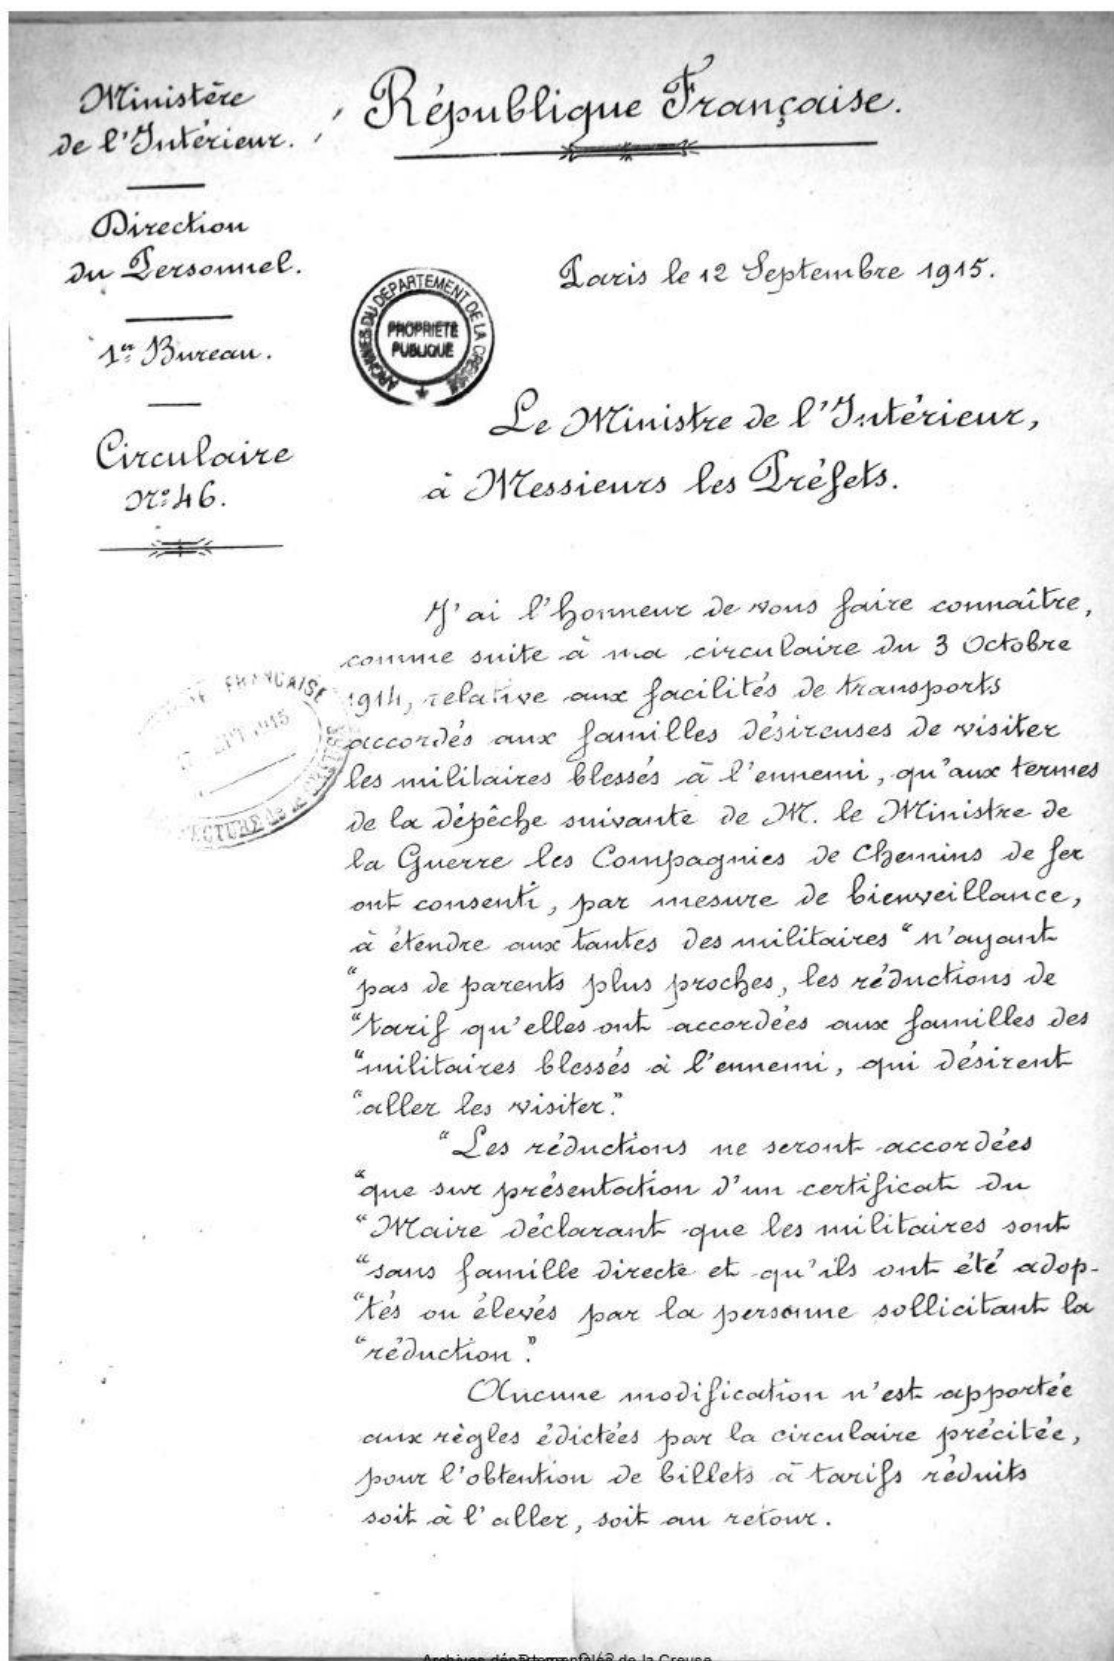 Ministère
de l'Intérieur.
République Française.
Direction
du Personnel.
Paris le 12 Septembre 1915.
1er Bureau.
ARCHIVES DU DEPARTEMENT DE LA CREUSE
PROPRIETE
PUBLIQUE
Circulaire
N° 46.
Le Ministre de l'Intérieur,
à Messieurs les Préfets.
J'ai l'honneur de vous faire connaître,
comme suite à ma circulaire du 3 Octobre
1914, relative aux facilités de transports
accordés aux familles désireuses de visiter
les militaires blessés à l'ennemi, qu'aux termes
de la dépêche suivante de M. le Ministre de
la Guerre les Compagnies de Chemins de fer
ont consenti, par mesure de bienveillance,
à étendre aux tantes des militaires "n'ayant
"pas de parents plus proches, les réductions de
"tarif qu'elles ont accordées aux familles des
"militaires blessés à l'ennemi, qui désirent
"aller les visiter."
"Les réductions ne seront accordées
"que sur présentation d'un certificat du
"Maire déclarant que les militaires sont
"sans famille directe et qu'ils ont été adop-
"tés ou élevés par la personne sollicitant la
"réduction".
Aucune modification n'est apportée
aux règles édictées par la circulaire précitée,
pour l'obtention de billets à tarifs réduits
soit à l'aller, soit au retour.
FRANCAISE
1915
Archives départementales de la Creuse